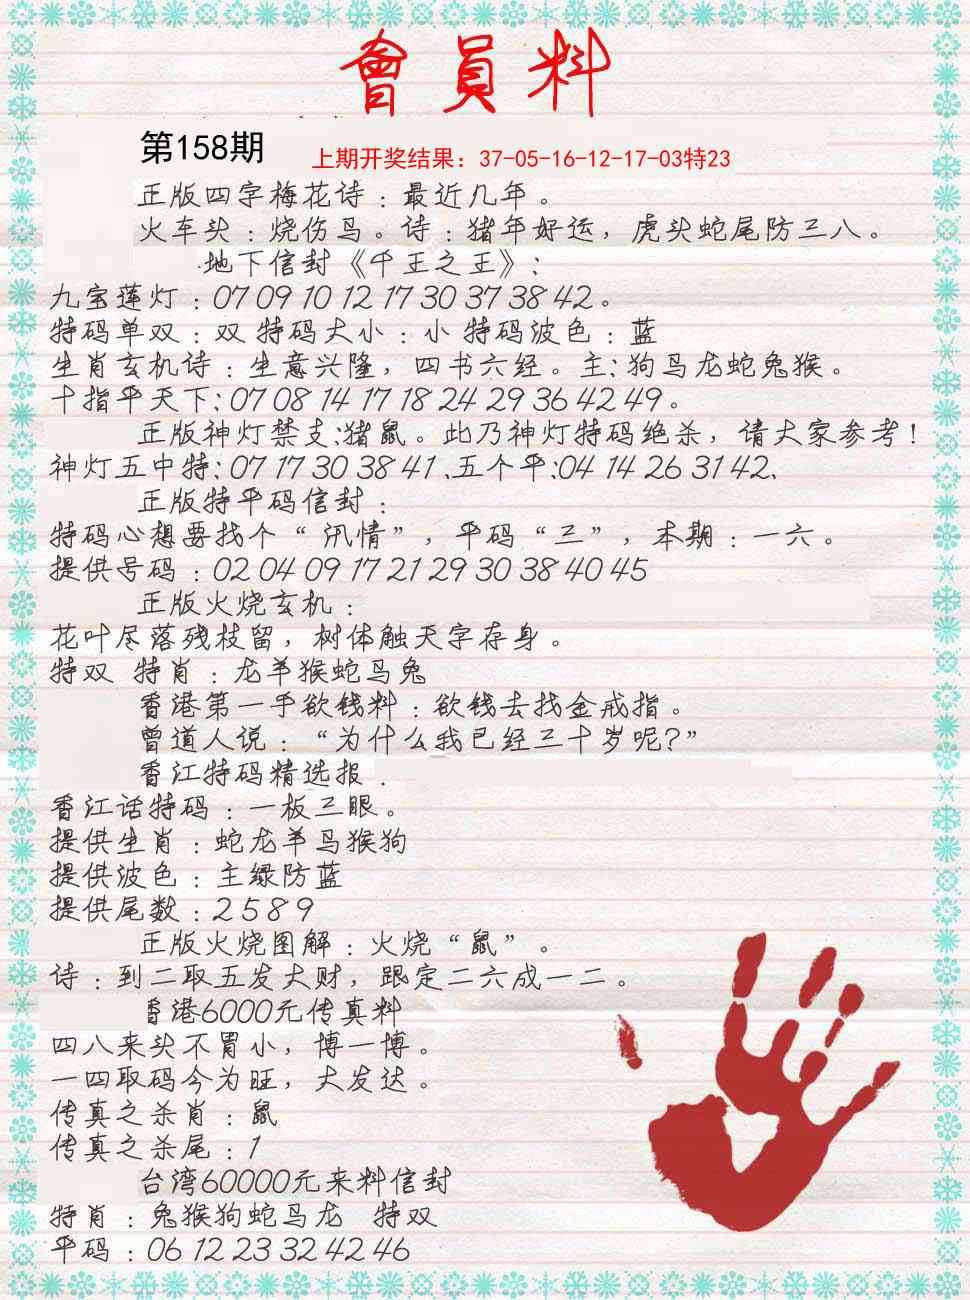 會員料
第158期
上期开奖结果：37-05-16-12-17-03特23
正版四字梅花诗：最近几年。
火车头：烧伤鸟。诗：猪年好运，虎头蛇尾防三八。
地下信封《千王之王》：
九宝莲灯：07 09 10 12 17 30 37 38 42。
特码单双：双 特码大小：小 特码波色：蓝
生肖玄机诗：生意兴隆，四书六经。主：狗马龙蛇兔猴。
十指平天下：07 08 14 17 18 24 29 36 42 49。
正版神灯禁支：猪鼠。此乃神灯特码绝杀，请大家参考！
神灯五中特：07 17 30 38 41、五个平：04 14 26 31 42、
正版特平码信封：
特码心想要找个“汛情”，平码“三”，本期：一六。
提供号码：02 04 09 17 21 29 30 38 40 45
正版火烧玄机：
花叶尽落残枝留，树体触天字存身。
特双 特肖：龙羊猴蛇马兔
香港第一手欲钱料：欲钱去找金戒指。
曾道人说：“为什么我已经三十岁呢?”
香江特码精选报．
香江话特码：一板三眼。
提供生肖：蛇龙羊马猴狗
提供波色：主绿防蓝
提供尾数：2 5 8 9
正版火烧图解：火烧“鼠”。
诗：到二取五发大财，跟定二六成一二。
香港6000元传真料
四八来头不胃小，博一博。
一四取码今为旺，大发达。
传真之杀肖：鼠
传真之杀尾：1
台湾60000元来料信封
特肖：兔猴狗蛇马龙 特双
平码：06 12 23 32 42 46